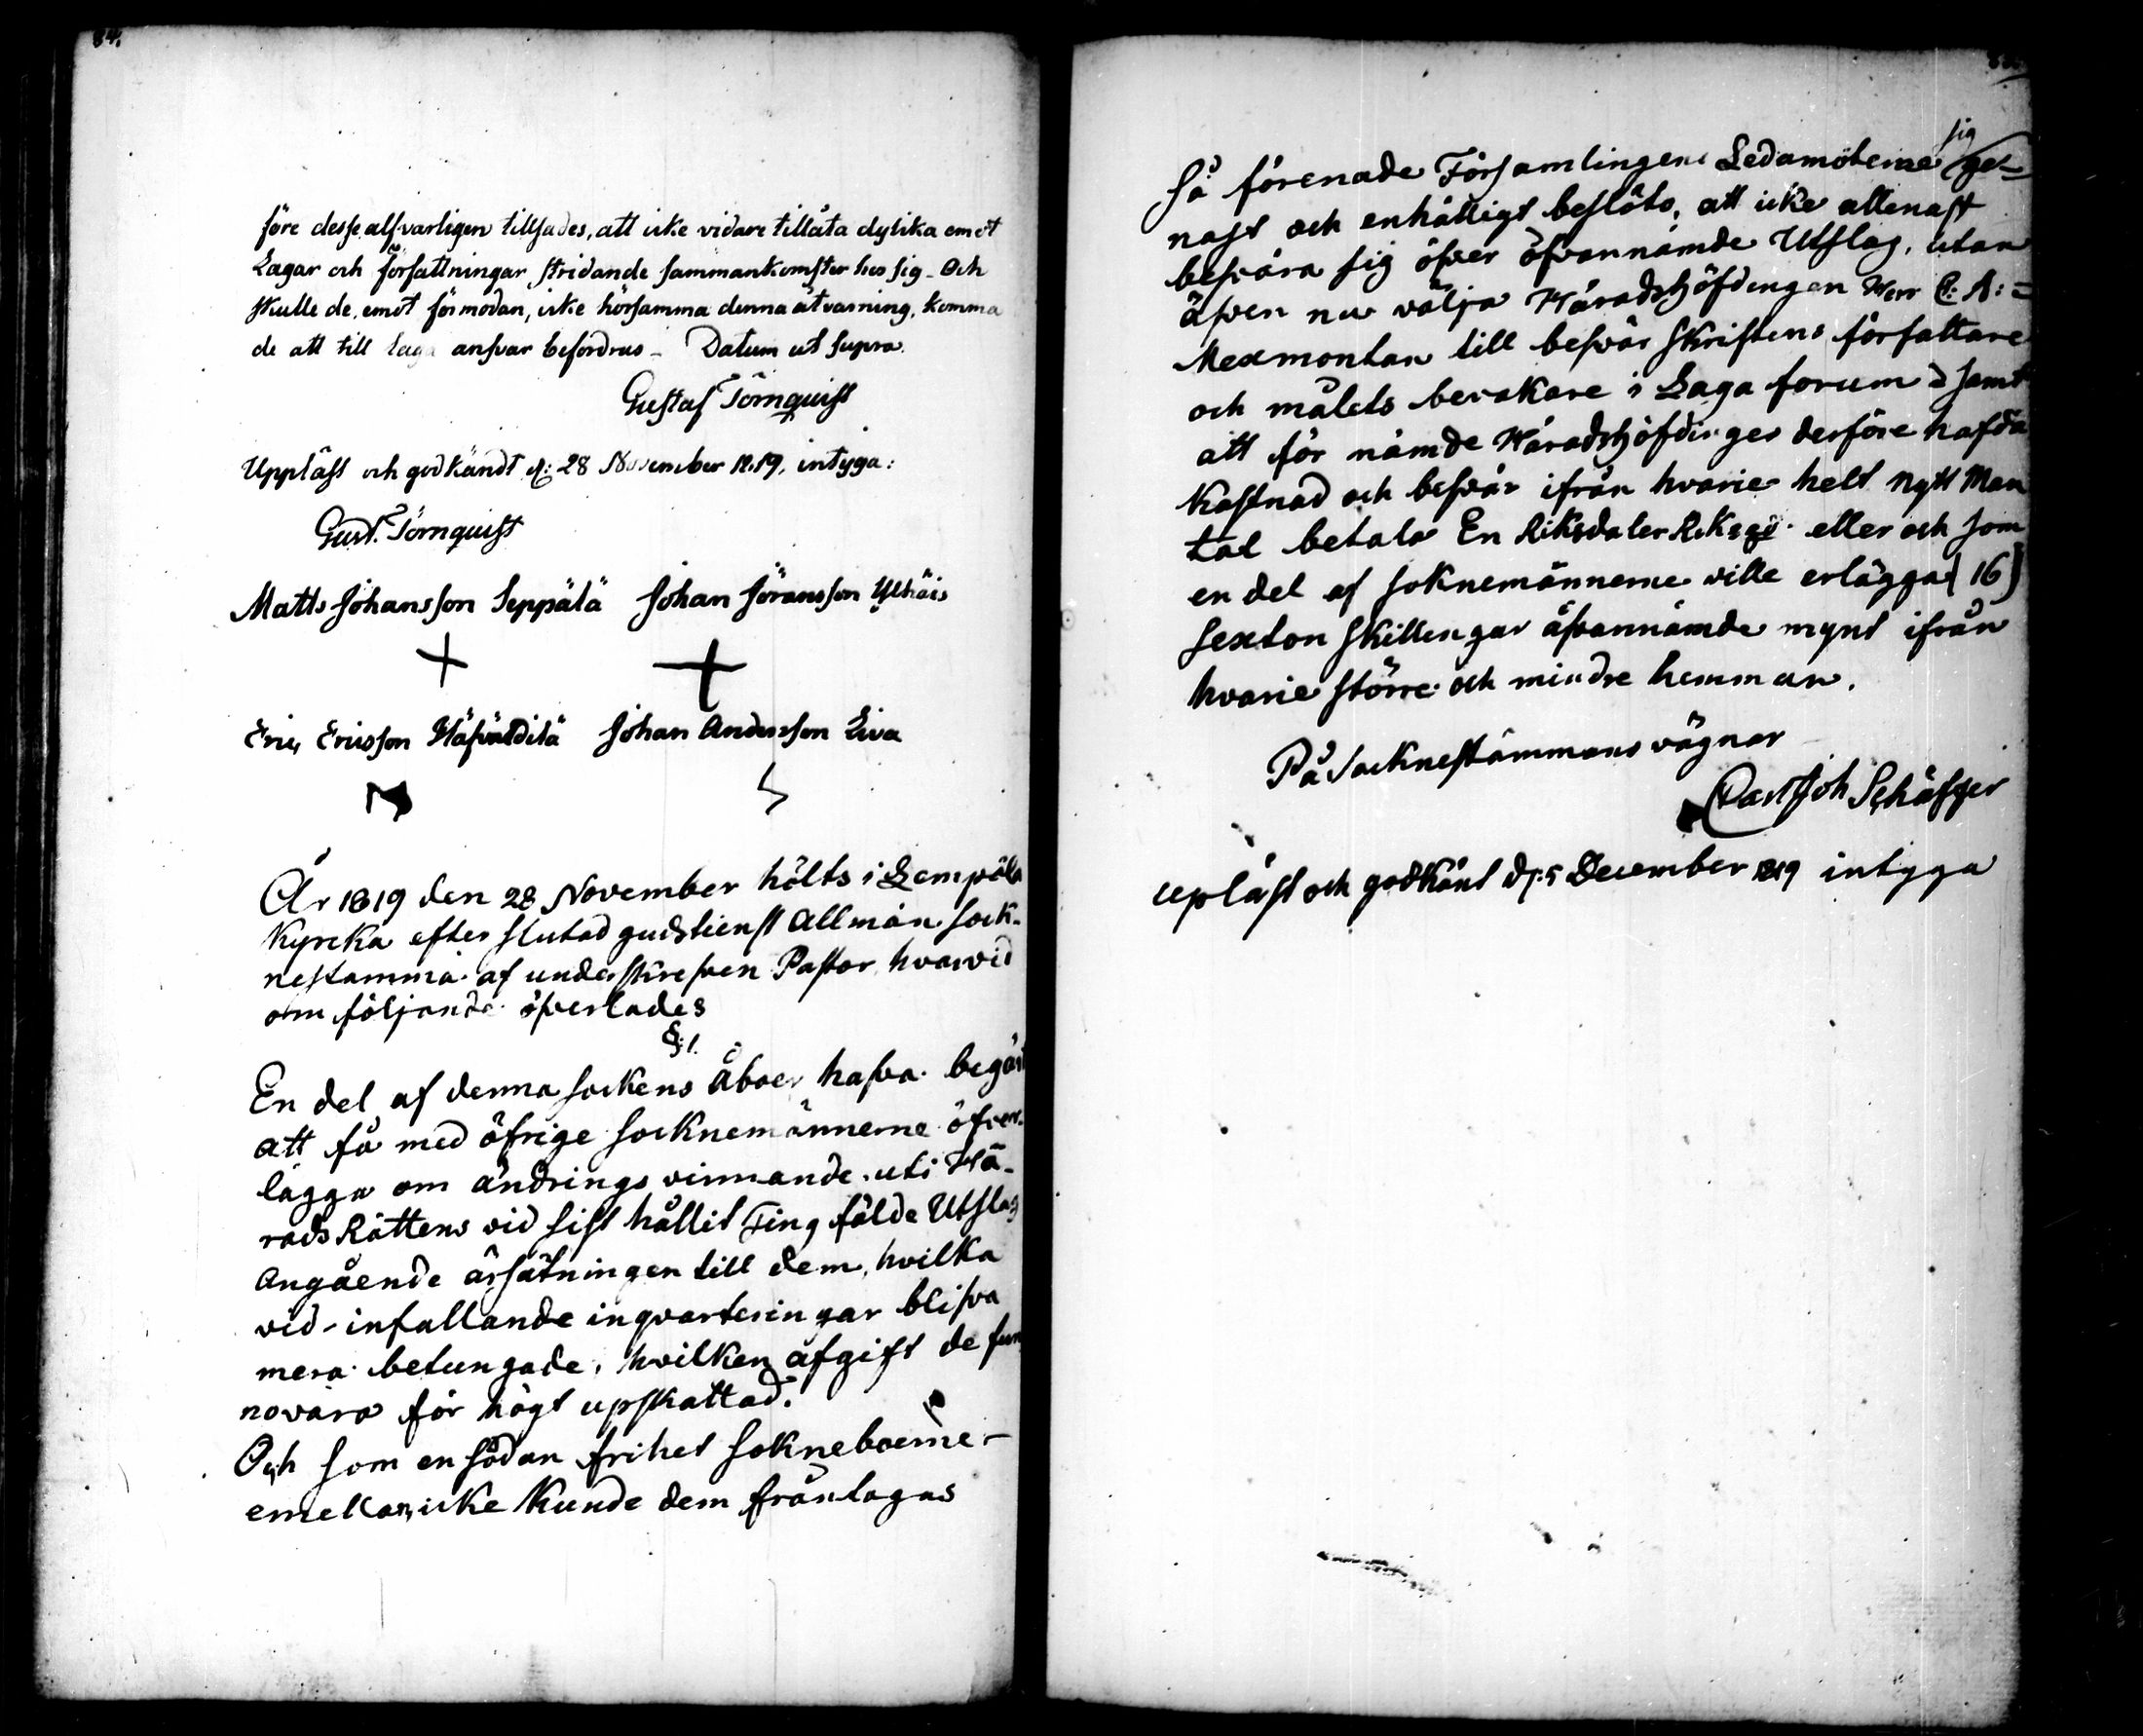 84.
före desse alfvarligen tillsades, att icke vidare tillåta dylika emot
Lagar och författningar stridande sammankomster hos sig. Och
skulle de, emot förmodan, icke hörsamma denna åtvarning, komma
de att till Laga ansvar befordras – Datum ut supra.
Gustaf Törnquist
Uppläst och godkändt d: 28 November 1819, intyga:
Gust. Törnquist
Matts Johansson Seppälä Johan Göransson Ylhäis
Eric Ericsson Johan Andersson Liva
År 1819 den 28 November hölts i Lempäla
Kyrcka efter slutad gudstienst Allmän sock-
nestämma af underskrefven Pastor hvarvid
om följande öfverlades
§:1.
En del af denna sockens Åboer hafva begärt
att få med öfrige socknemännerne öfver-
lägga om ändrings vinnande uti Hä-
rads Rättens vid sist hållit Ting fälde Utslag
angående ärsätningen till dem, hvilka
vid infallande inqvarteringar blifva
mera betungade, hvilken afgift de fun
no vara för högt upskattad.
Och som en sådan frihet sokneboerne
emellan, icke kunde dem fråntagas
så förenade Församlingens Ledamöterne sig ge-
nast och enhälligt beslöto, att icke allenast
besvära sig öfver öfvannämde Utslag, utan
äfven nu välja Häradshöfdingen Herr C: A:=
Mexmontan till besvär skriftens författare
och målets bevakare i Laga forum samt
att för nämde Häradshöfdinges derföre hafda
kostnad och besvär ifrån hvarie helt nytt Man
tal betala En Riksdaler Riksgs eller och som
en del af soknemännerne ville erlägga (16)
sexton skillingar åfvannämde mynt ifrån
hvarie större och mindre hemman.
På Socknestämmans vägnar
Carl Joh Schäfger
upläst och godkänt d: 5 December 1819 intyga